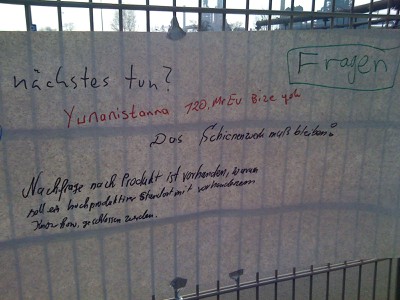 Fragen
nächstes tun?
Yunanistanna 120. Mr Eu Bize yok
Das Schienenwerk muß bleiben!
Nachfrage nach Produkt ist vorhanden, warum
soll ein hochproduktiver Standort mit vorhandenem
Know how, geschlossen werden.